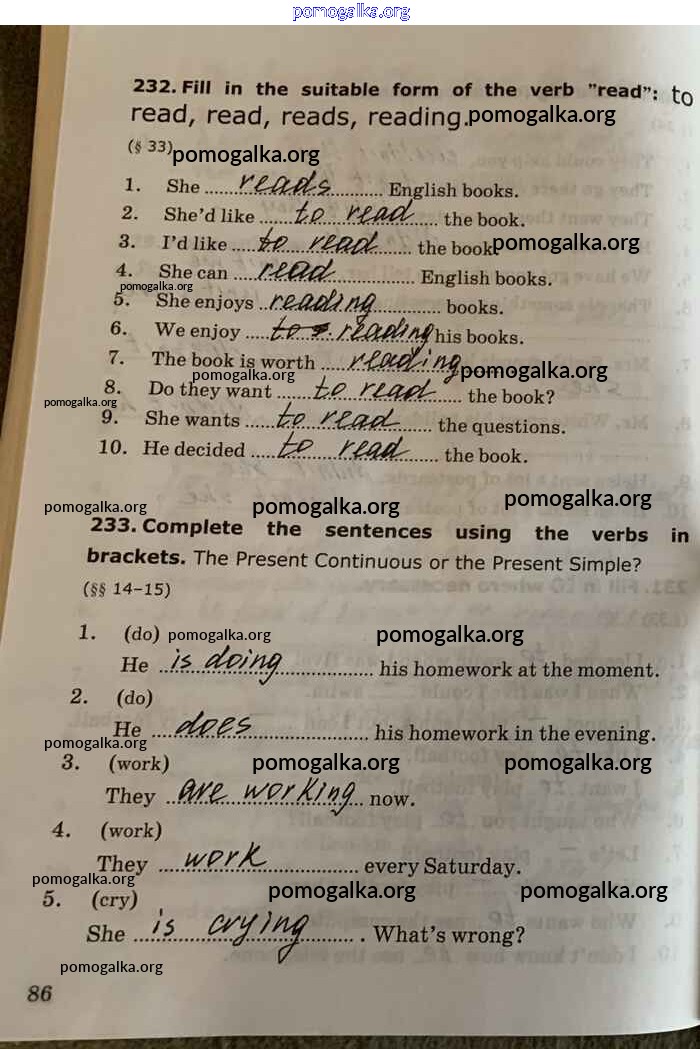 pomogalka.org
232. Fill in the suitable form of the verb "read": to
read, read, reads, reading. pomogalka.org
(§ 33) pomogalka.org
1. She ...... reads ...... English books.
2. She'd like ...... to read ...... the book.
3. I'd like ...... to read ...... the book. pomogalka.org
4. She can ...... read ...... English books.
pomogalka.org
5. She enjoys ...... reading ...... books.
6. We enjoy ...... to reading his books.
7. The book is worth ...... reading ......
pomogalka.org pomogalka.org
8. Do they want ...... to read ...... the book?
pomogalka.org
9. She wants ...... to read ...... the questions.
10. He decided ...... to read ...... the book.
pomogalka.org pomogalka.org pomogalka.org
233. Complete the sentences using the verbs in
brackets. The Present Continuous or the Present Simple?
(§§ 14–15)
1. (do) pomogalka.org pomogalka.org
He ...... is doing ...... his homework at the moment.
2. (do)
He ...... does ...... his homework in the evening.
pomogalka.org
3. (work) pomogalka.org pomogalka.org
They ...... are working ...... now.
4. (work)
They ...... work ...... every Saturday.
pomogalka.org
5. (cry) pomogalka.org pomogalka.org
She ...... is crying ...... . What's wrong?
pomogalka.org
86